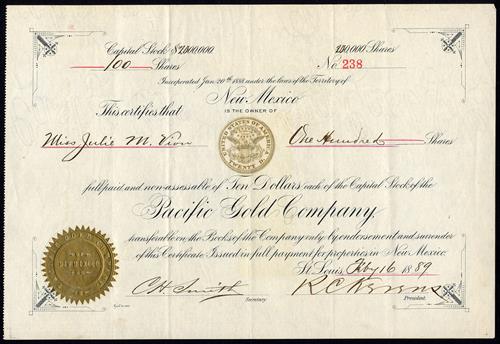 Capital Stock $
100 Shares
000 Shares
No. 238
Incorporated Jan. 20th 1888 under the laws of the Territory of
New Mexico
This certifies that
IS THE OWNER OF
Miss Julie M.
One Hundred Shares
UNITED STATES OF AMERICA
TWENTY D.
full paid and non-assessable of Ten Dollars each of the Capital Stock of the
Pacific Gold Company,
transferable on the Books of the Company only by endorsement and surrender
of this Certificate. Issued in full payment for properties in New Mexico.
St. Louis, Feby 16 1889
C.H. Smith
Secretary
R C Kerens
President